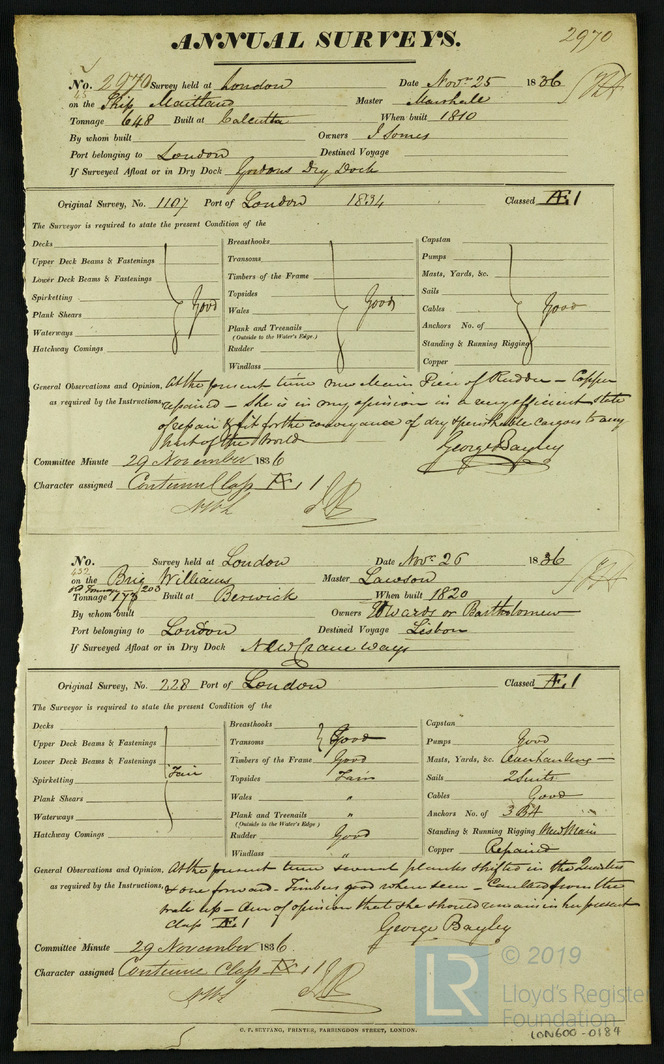 ANNUAL SURVEYS.
2970
No. 2970 Survey held at London Date Novr 25 1836
on the Ship Maitland Master Marshall
Tonnage 648 Built at Calcutta When built 1810
By whom built Owners J Somes
Port belonging to London Destined Voyage
If Surveyed Afloat or in Dry Dock Gordons Dry Dock
Original Survey, No. 1107 Port of London 1834 Classed Æ 1
The Surveyor is required to state the present Condition of the
Decks Breasthooks Capstan
Upper Deck Beams & Fastenings Transoms Pumps
Lower Deck Beams & Fastenings Timbers of the Frame Masts, Yards, &c.
Spirketting Good Topsides Good Sails Good
Plank Shears Wales Cables
Waterways Plank and Treenails Anchors No. of
(Outside to the Water's Edge.)
Hatchway Comings Rudder Standing & Running Rigging
Windlass Copper
General Observations and Opinion, At the present time new Main Piece of Rudder - Copper
as required by the Instructions, repaired - She is in my opinion in a very efficient state
of repair & fit for the conveyance of dry & perishable cargoes to any
part of the World
George Bayley
Committee Minute 29 November 1836
Character assigned Continue Class Æ 1
No. Survey held at London Date Novr 26 1836
452
on the Brig Williams Master Lawson
Tonnage 203 Built at Berwick When built 1820
By whom built Owners Edwards or Bartholomew
Port belonging to London Destined Voyage Lisbon
If Surveyed Afloat or in Dry Dock New Crane Ways
Original Survey, No. 228 Port of London Classed Æ 1
The Surveyor is required to state the present Condition of the
Decks Breasthooks Capstan
Upper Deck Beams & Fastenings Transoms Good Pumps Good
Lower Deck Beams & Fastenings Timbers of the Frame Good Masts, Yards, &c.
Spirketting Fair Topsides Fair Sails 2 Suits
Plank Shears Wales " Cables Good
Waterways Plank and Treenails " Anchors No. of 3 B4
(Outside to the Water's Edge)
Hatchway Comings Rudder Good Standing & Running Rigging New Main
Windlass " Copper Repaired
General Observations and Opinion, At the present time several planks shifted in the
as required by the Instructions, & one forward - Timbers good where seen - Caulked from the
wale up - Am of opinion that she should remain in her present
class Æ 1
George Bayley
Committee Minute 29 November 1836.
Character assigned Continue Class Æ 1
C. F. SEYFANG, PRINTER, FARRINGDON STREET, LONDON.
LR
© 2019
Lloyd's Register
Foundation
LON600-0184